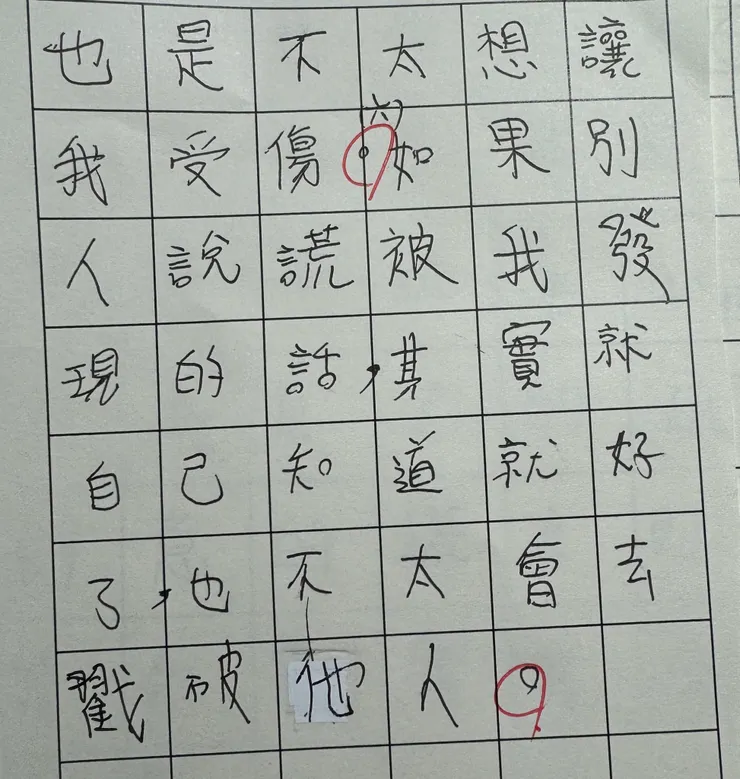 也是不太想讓
我受傷。(六)如果別
人說謊被我發
現的話，其實就
自己知道就好
了，也不太會去
戳破他人。